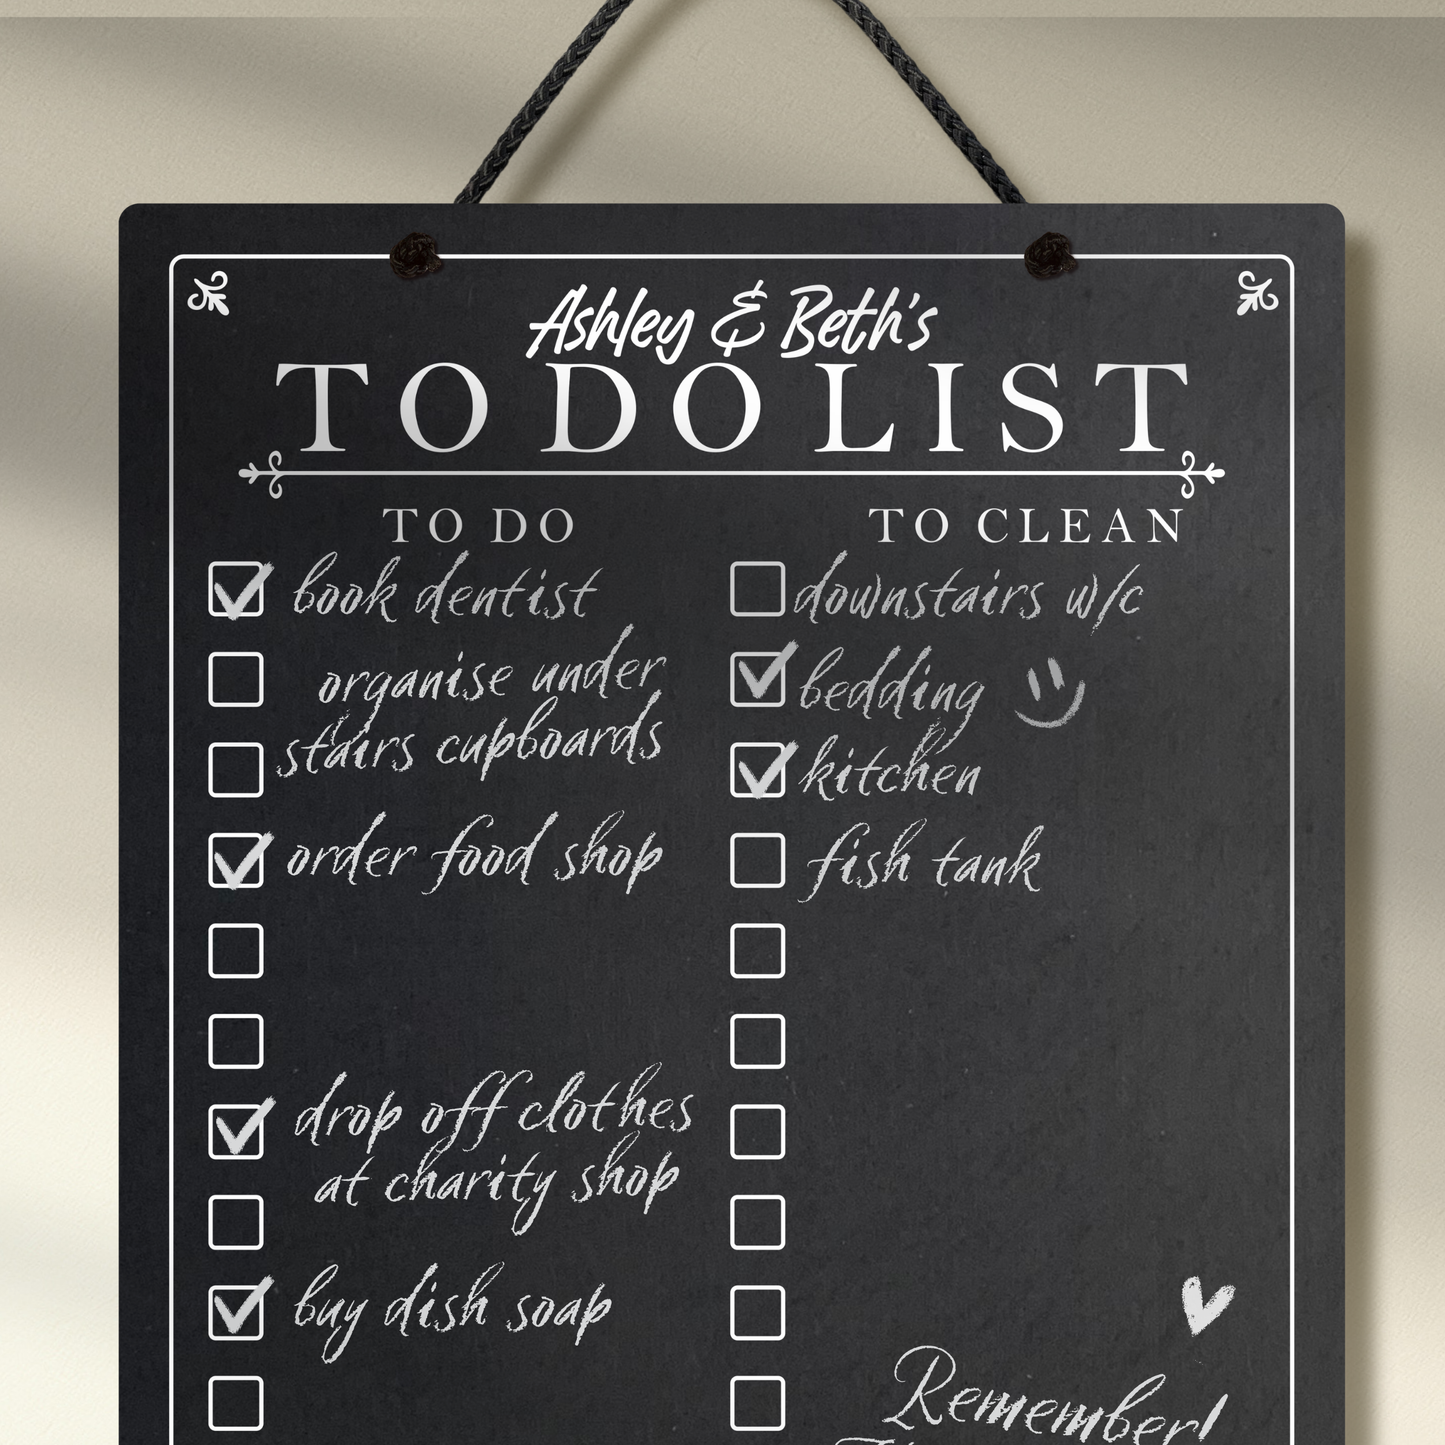 Ashley & Beth's
TO DO LIST
TO DO
book dentist
organise under
stairs cupboards
order food shop
drop off clothes
at charity shop
buy dish soap
TO CLEAN
downstairs w/c
bedding
kitchen
fish tank
Remember!